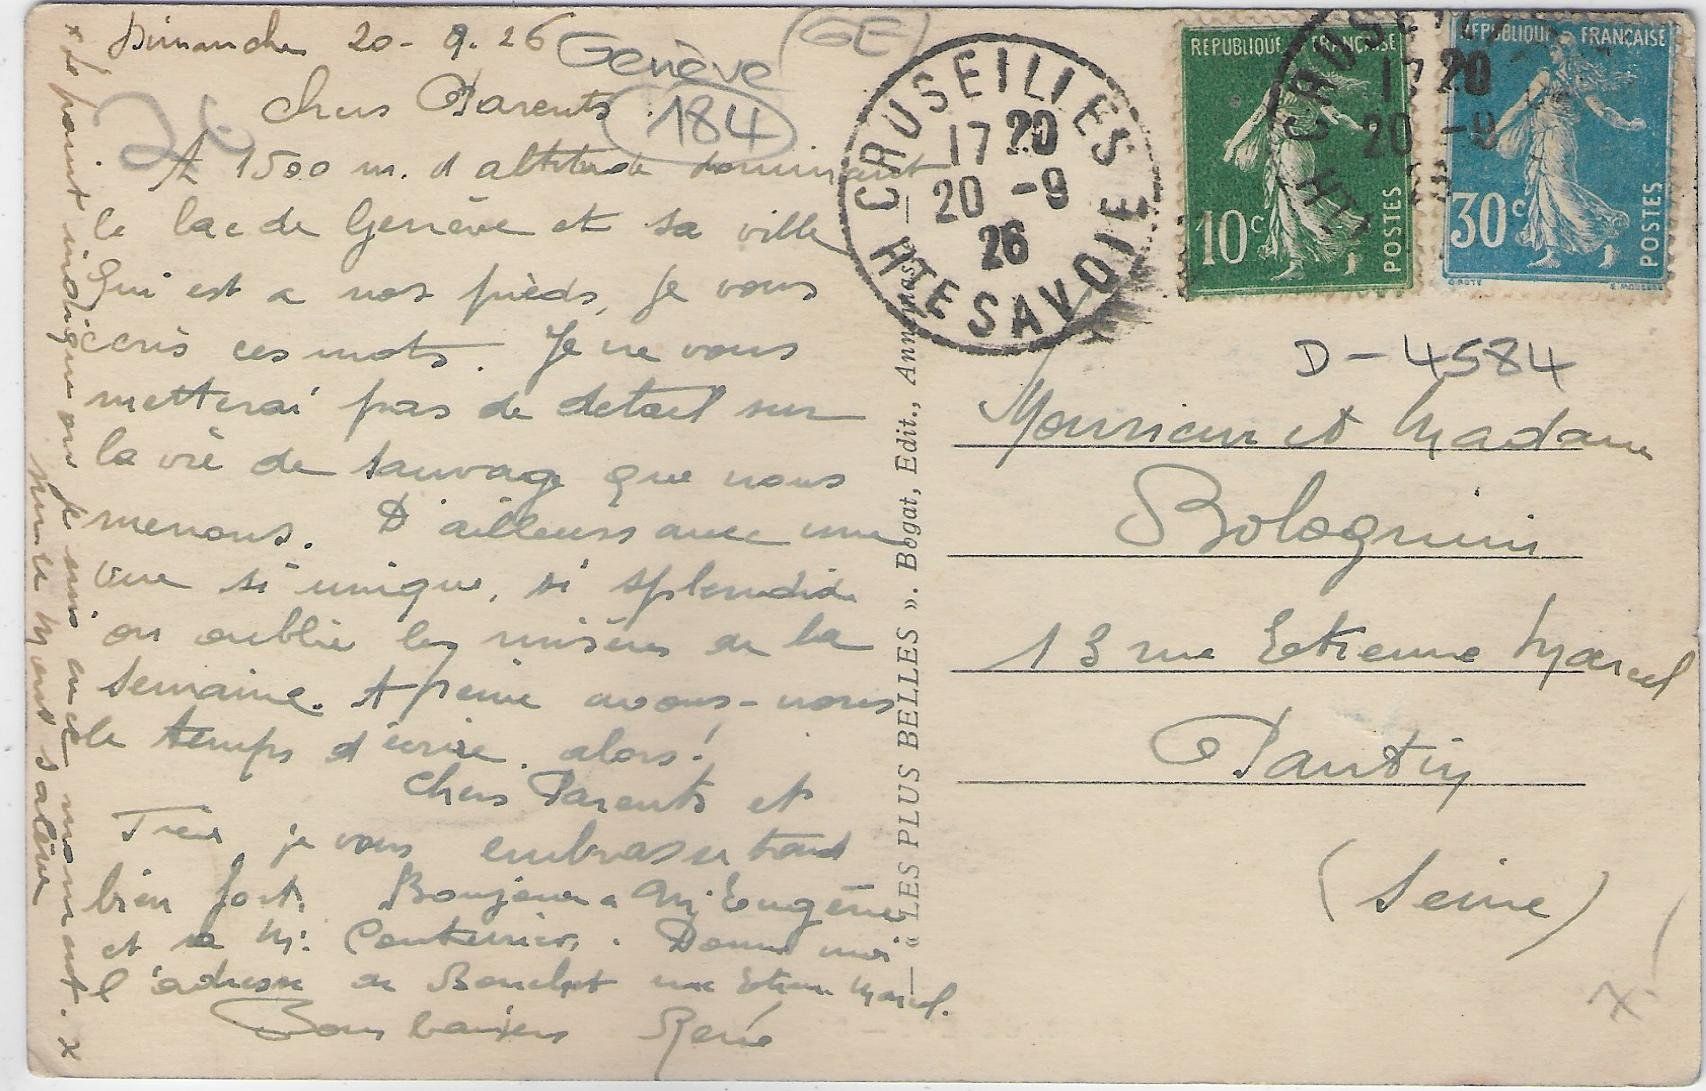 Dimanche 20-9.26
Genève
GE
184
Chers Parents.
A 1500 m. d'altitude dominant
le lac de Genève et sa ville
qui est a nos pieds, je vous
ecris ces mots. Je ne vous
metterai pas de detail sur
la vie de sauvage que nous
menons. D'ailleurs avec une
vue si unique, si splendide
on oublie les misères de la
semaine. A peine avons-nous
le temps d'écrire. alors!
Chers Parents et
je vous embrasse tous
bien fort. Bonjour a Mr Eugène
et a Mr Couturier. Donne moi
l'adresse de rue Etienne Marcel.
Bons baisers René
x le point indique ou je suis en ce moment. x
sur le Mont Salève
CRUSEILLES
17 20
20 -9
26
HTE SAVOIE
REPUBLIQUE FRANÇAISE
10c
POSTES
CRUSEILLES
17 20
20 -9
26
HTE
REPUBLIQUE FRANÇAISE
30c
POSTES
« LES PLUS BELLES ». Bogat, Edit., Annemasse
D-4584
Monsieur et Madame
Bolognini
13 rue Etienne Marcel
Pantin
(Seine)
x